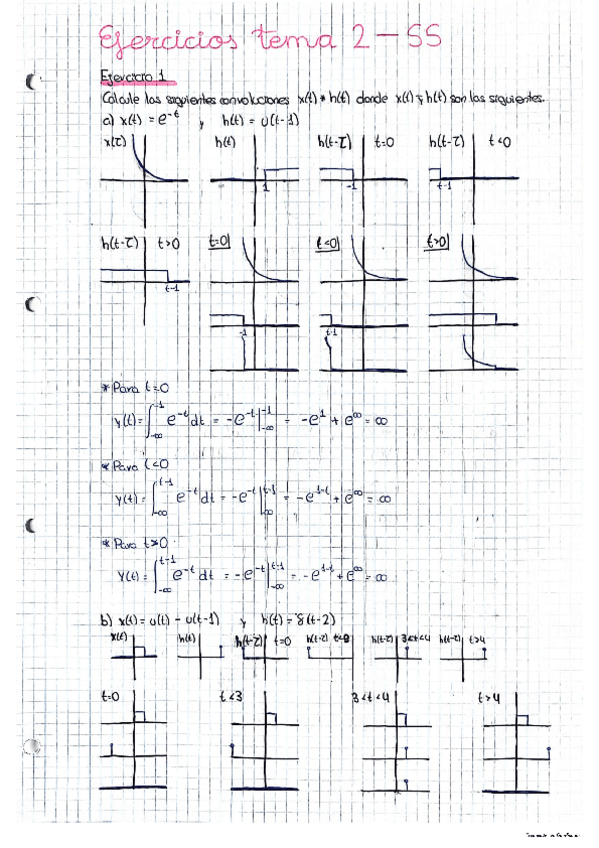 Ejercicios tema 2 - SS
Ejercicio 1
Calcule las siguientes convoluciones x(t) * h(t) donde x(t) y h(t) son las siguientes.
a) x(t) = e^-t y h(t) = u(t-1)
x(τ) h(t) h(t-τ) t=0 h(t-τ) t<0
1 -1 t-1
h(t-τ) t>0 t=0 t<0 t>0
t-1
-1 t-1
* Para t=0
y(t) = ∫_{-∞}^{-1} e^-t dt = -e^-t |_{-∞}^{-1} = -e^1 + e^∞ = ∞
* Para t<0
y(t) = ∫_{-∞}^{t-1} e^-t dt = -e^-t |_{-∞}^{t-1} = -e^{1-t} + e^∞ = ∞
* Para t>0
y(t) = ∫_{-∞}^{t-1} e^-t dt = -e^-t |_{-∞}^{t-1} = -e^{1-t} + e^∞ = ∞
b) x(t) = u(t) - u(t-1) y h(t) = δ(t-2)
x(t) h(t) h(t-τ) t=0 h(t-τ) h(t-τ) 3<t<4 h(t-τ) t>4
t=0 t<3 3<t<4 t>4